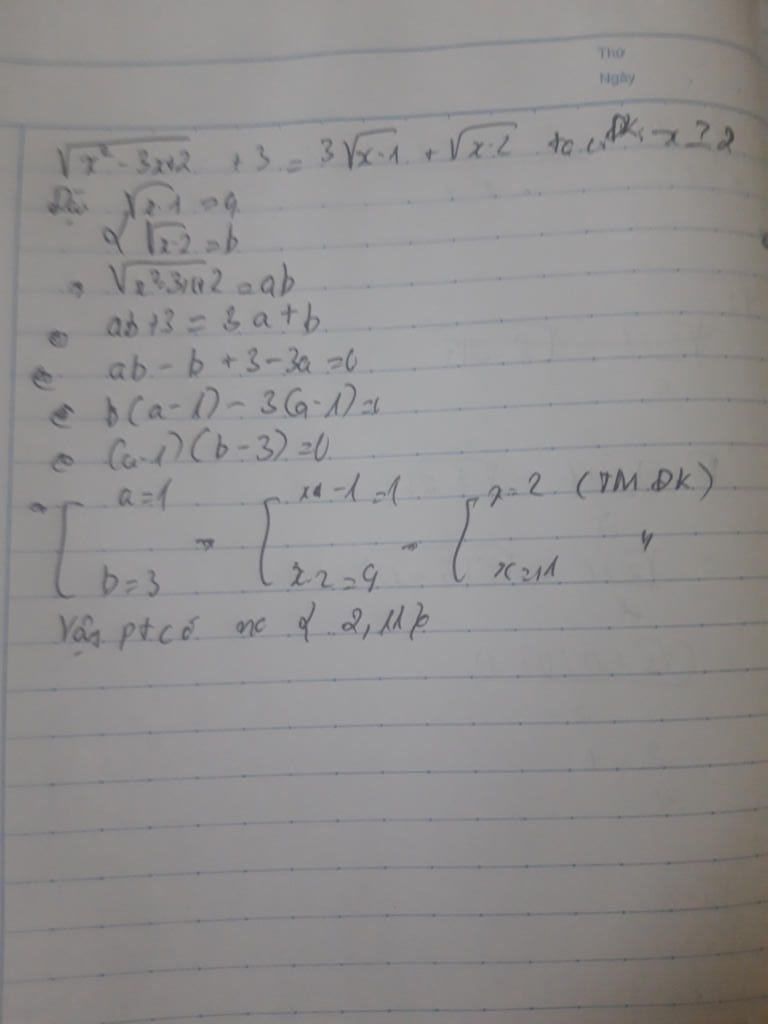 Thứ
Ngày
√(x²-3x+2) + 3 = 3√(x-1) + √(x-2) ta có ĐK: x ≥ 2
Đặt √(x-1) = a
√(x-2) = b
√(x²-3x+2) = ab
ab + 3 = 3a + b
ab - b + 3 - 3a = 0
b(a-1) - 3(a-1) = 0
(a-1)(b-3) = 0
a = 1 x - 1 = 1 x = 2 (TM ĐK)
b = 3 x-2 = 9 x = 11 "
Vậy pt có { 2, 11 }